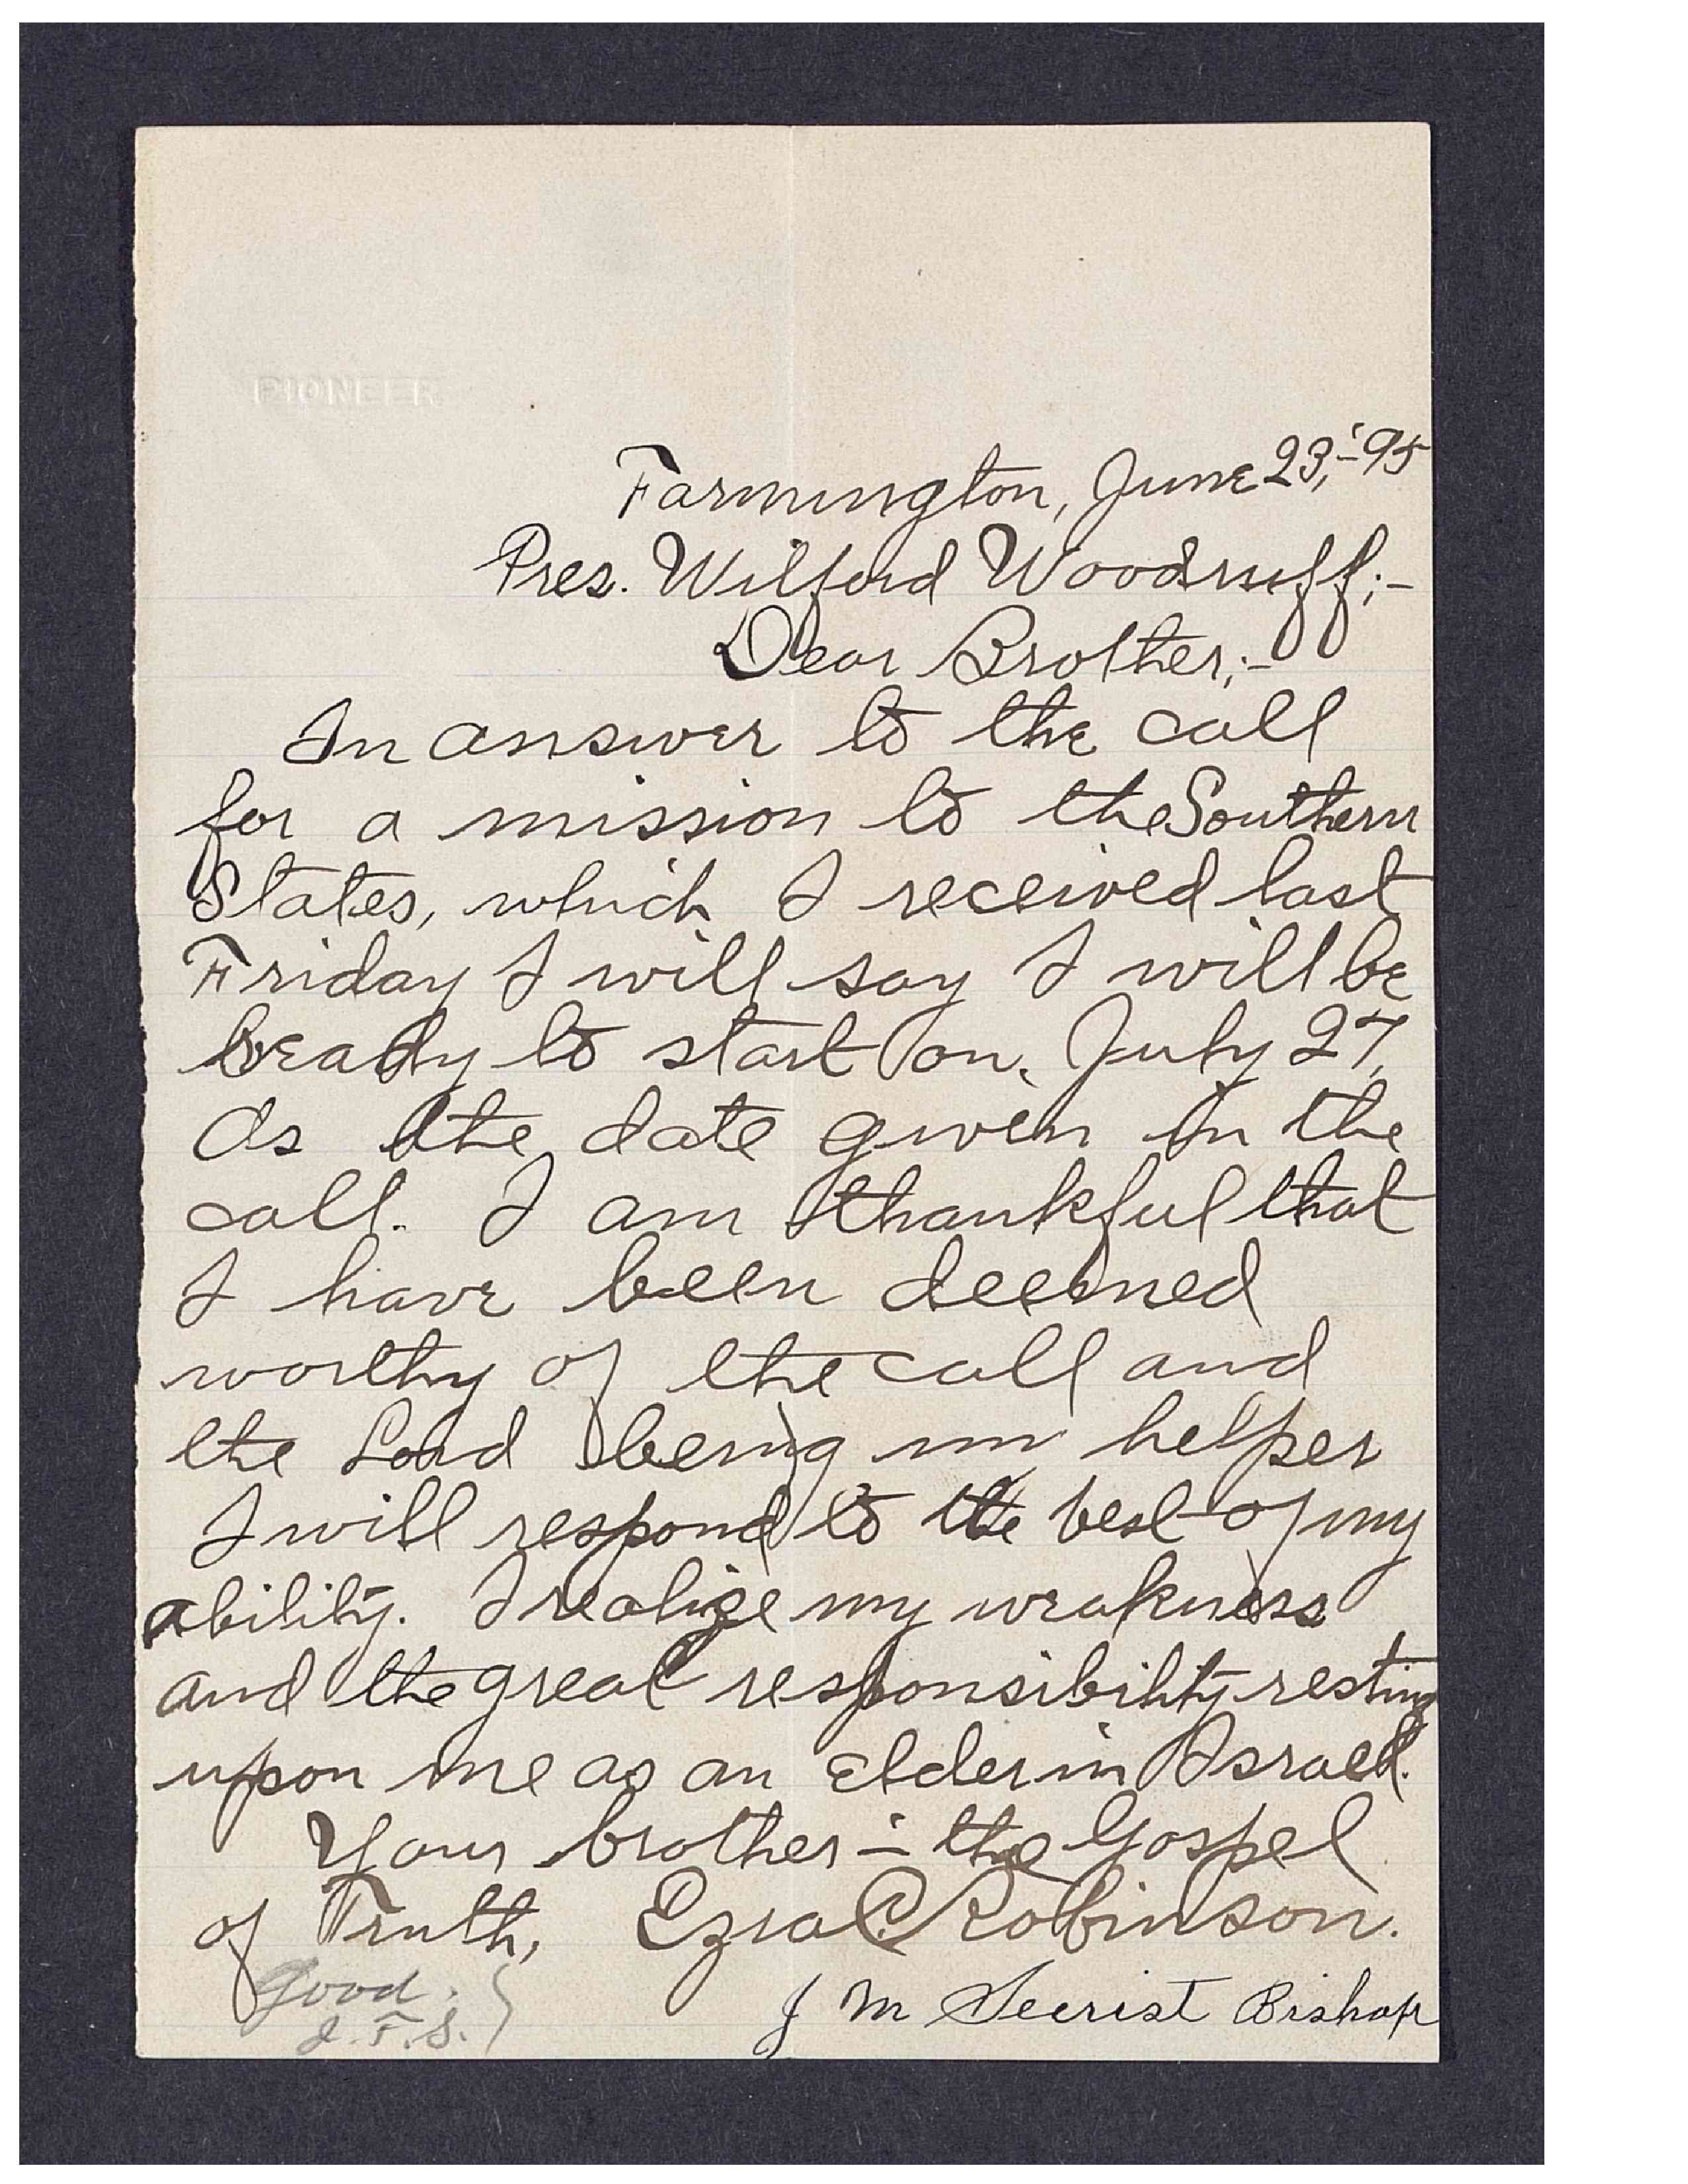 PIONEER
Farmington, June 23, '95
Pres. Wilford Woodruff;-
Dear Brother;-
In answer to the call
for a mission to the Southern
States, which I received last
Friday I will say I will be
ready to start on July 27,
as the date given in the
call. I am thankful that
I have been deemed
worthy of the call and
the Lord being my helper
I will respond to the best of my
ability. I realize my weakness
and the great responsibility resting
upon me as an Elder in Israel.
Your brother in the Gospel
of Truth, Ezra C. Robinson.
J M Secrist Bishop
Good.
J. F. S.